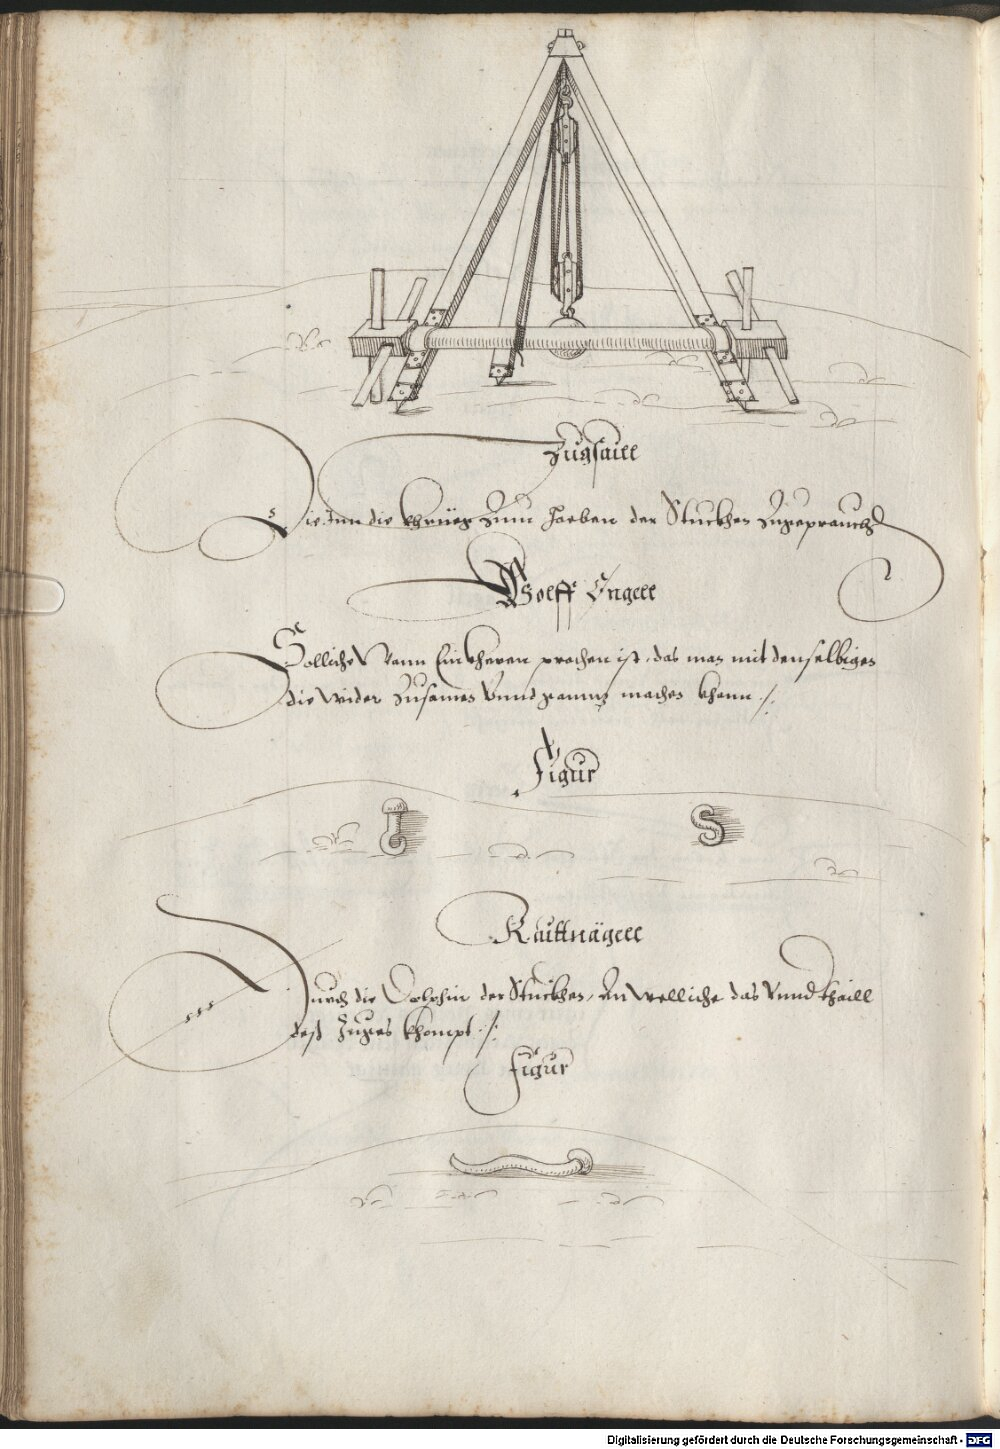 Zugsaill
Die Inn die khrüeg Zum heeben der Stuckhen Zugepraucht
Wolff Enngell
Solliche Wann Ein khetten prochen ist, das man mit denselbigen
die wider Zusamen Vnnd ganntz machen khann ./.
Figur
Raittnägell
Durch die Dolphin der Stuckhen, An welliche das Vnnd thaill
deß Zuges khompt ./.
Figur
Digitalisierung gefördert durch die Deutsche Forschungsgemeinschaft - DFG